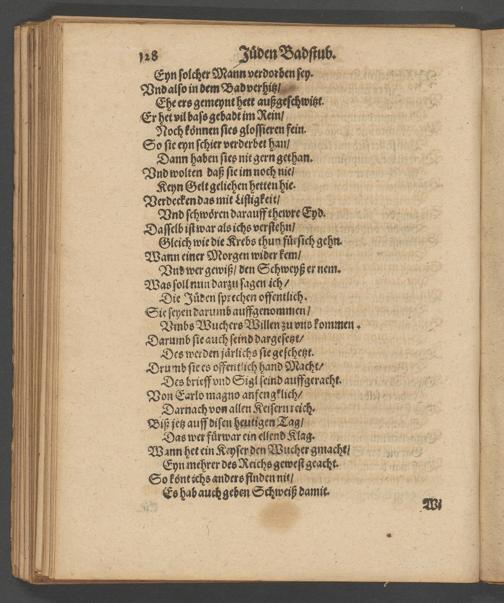 128 Jüden Badstub.
Eyn solcher Mann verdorben sey.
Vnd also in dem Bad verhitz/
Ehe ers gemeynt hett außgeschwitzt.
Er het vil bass gebadt im Rein/
Noch können sies glossieren fein.
So sie eyn schier verderbet han/
Dann haben sies nit gern gethan.
Vnd wolten daß sie im noch nie/
Keyn Gelt gelichen hetten hie.
Verdecken das mit Listigkeit/
Vnd schwören darauff thewre Eyd.
Dasselb ist war als ichs verstehn/
Gleich wie die Krebs thun fürsich gehn.
Wann einer Morgen wider kem/
Vnd wer gewiß/ den Schweyß er nem.
Was soll nun darzu sagen ich/
Die Jüden sprechen offentlich.
Sie seyen darumb auffgenommen/
Vmbs Wuchers Willen zu vns kommen.
Darumb sie auch seind dargesetzt/
Des werden järlichs sie geschetzt.
Drumb sie es offentlich hand Macht/
Des brieff vnd Sigl seind auffgeracht.
Von Carlo magno anfengklich/
Darnach von allen Keisern reich.
Biß jetz auff disen heutigen Tag/
Das wer fürwar ein ellend Klag.
Wann het ein Keyser den Wucher gmacht/
Eyn mehrer des Reichs gewest geacht.
So könt ichs anders finden nit/
Es hab auch geben Schweiß damit.